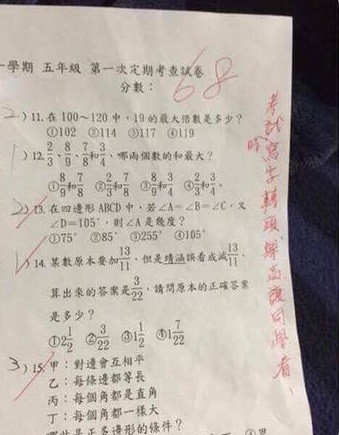 一學期 五年級 第一次定期考查試卷
分數： 68
2) 11. 在 100～120 中，19 的最大倍數是多少？
①102 ②114 ③117 ④119
1) 12. 2/3、8/9、7/8和3/4，哪兩個數的和最大？
①8/9和7/8 ②2/3和7/8 ③8/9和3/4 ④2/3和3/4。
2) 13. 在四邊形 ABCD 中，若∠A=∠B=∠C，又
∠D=105°，則∠A 是幾度？
①75° ②85° ③255° ④105°
1) 14. 某數原本要加13/11，但是靖涵誤看成減13/11，
算出來的答案是3/22，請問原本的正確答案
是多少？
①2 1/2 ②3/22 ③1 1/2 ④1 7/22
3) 15. 甲：對邊會互相平
乙：每條邊都等長
丙：每個角都是直角
丁：每個角都一樣大
是正多邊形的條件？
考試時寫字轉頭舉高讓同學看、